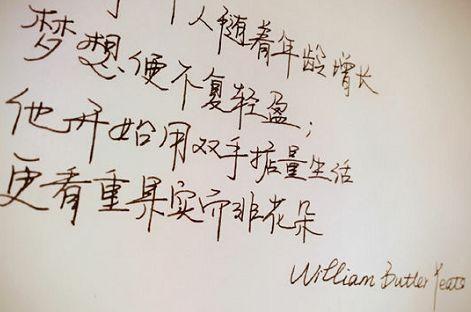 个人随着年龄增长
梦想便不复轻盈；
他开始用双手掂量生活
更看重果实而非花朵
William Butler Yeats